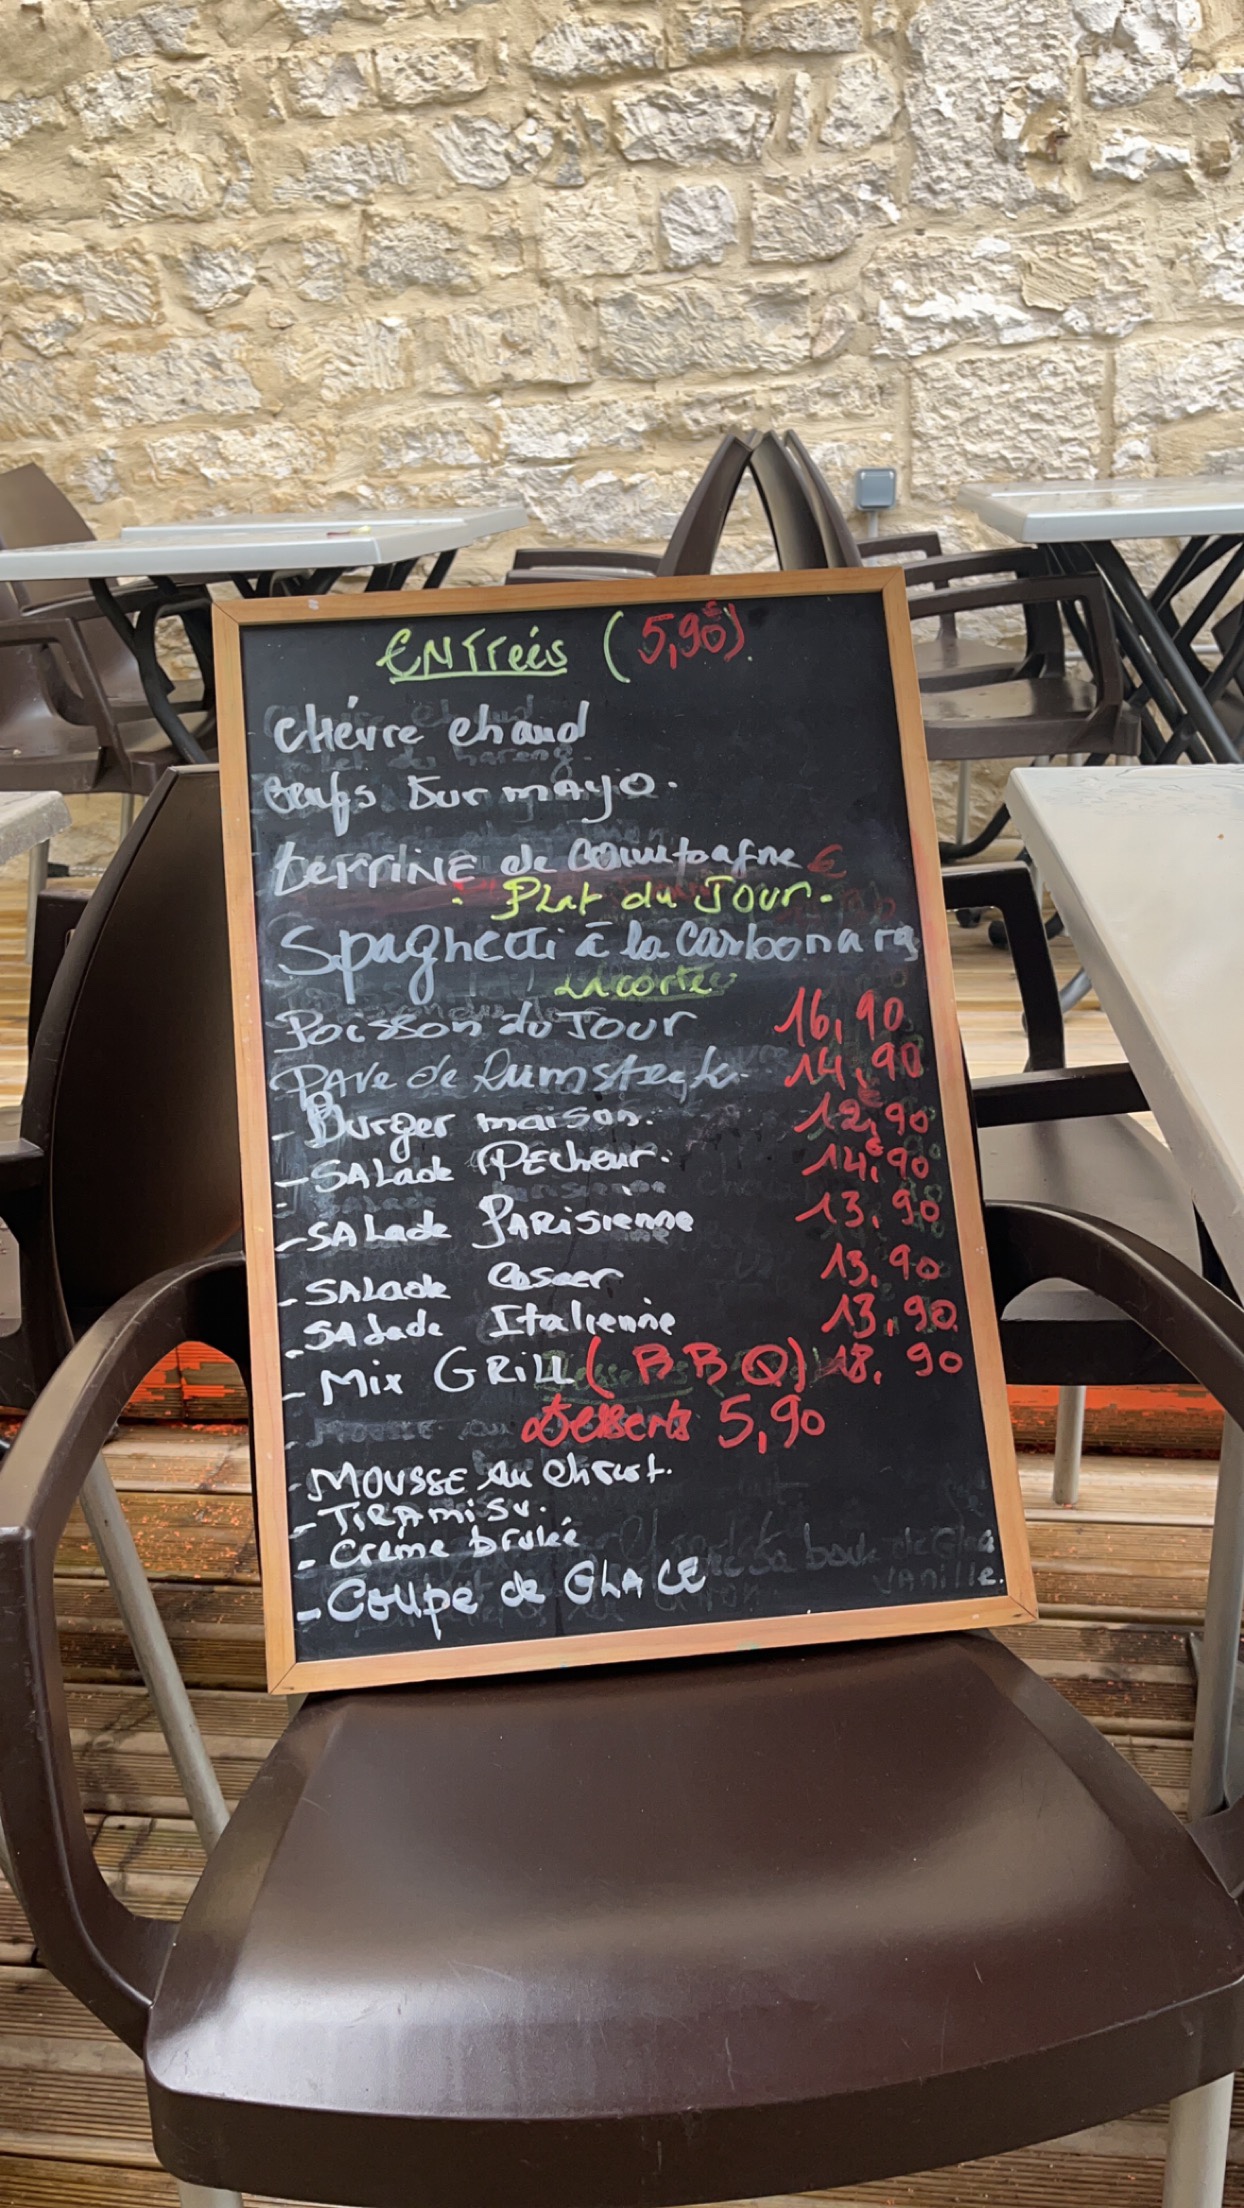 ENTreés (5,90€)
chévre chaud
Oeufs Dur mayo.
terrine de Campagne €
. Plat du Jour.
Spaghetti à la Carbonara
La carte
Poisson du Jour 16,90
Pave de Rumsteck 14,90
- Burger maison. 12,90€
- SALade Pecheur. 14,90€
- SALade PARisienne 13.90
- SALade Cesaer 13,90
- SALade Italienne 13,90
- Mix GRiLL (BBQ) 18.90
Desserts 5,90
- MOUSSE Au
- TIRAmiSu.
- Crème brulée
- Coupe de GLACE
vanille.